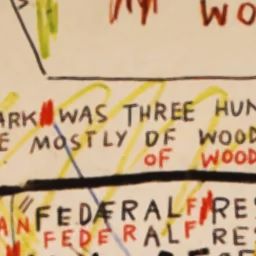 WO
ARK WAS THREE HUN
E MOSTLY OF WOOD
OF WOOD
"FEDERAL RE
AN FEDERAL F RES